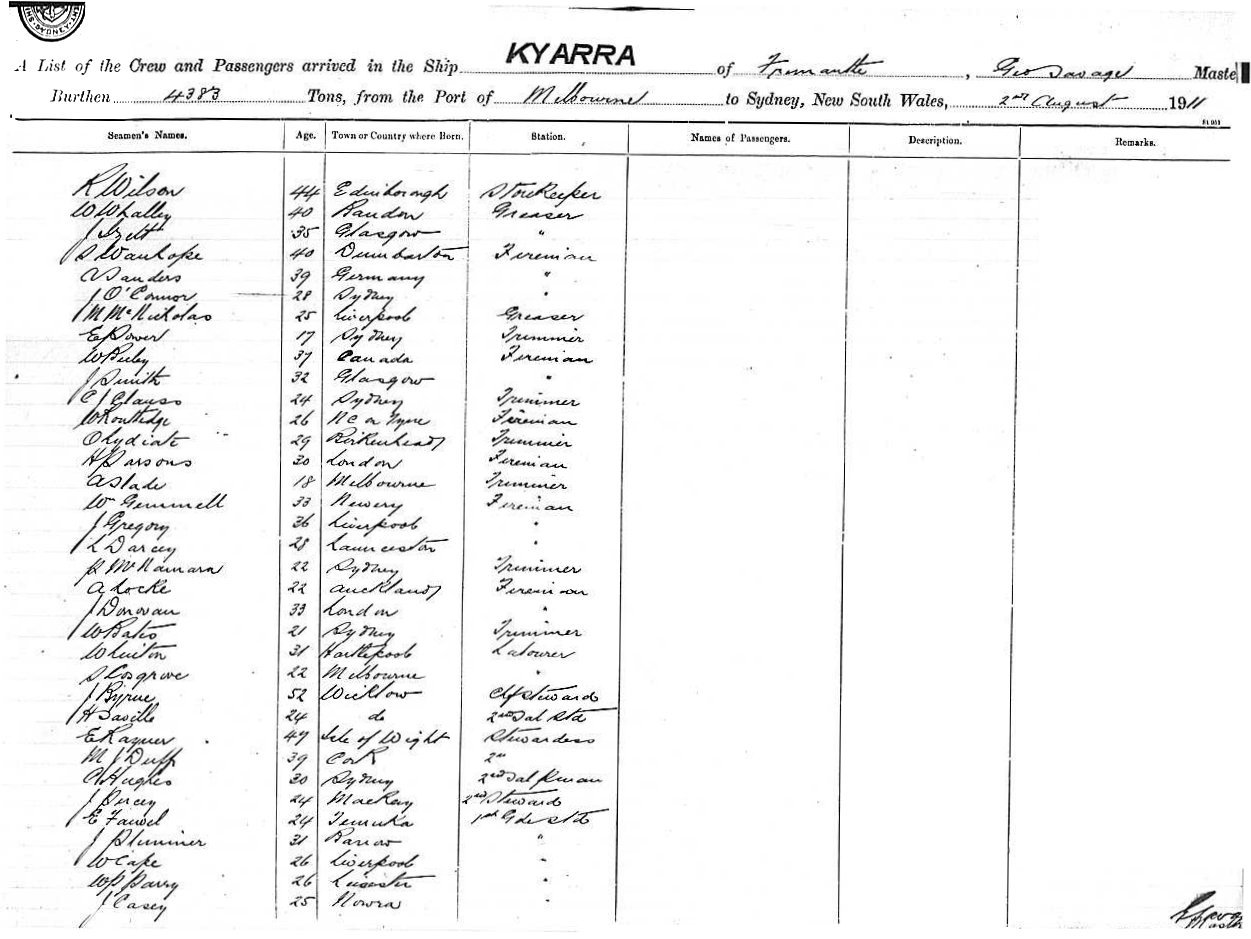 SYDNEY
KYARRA
A List of the Crew and Passengers arrived in the Ship KYARRA of Fremantle, Geo Savage Maste
Burthen 4383 Tons, from the Port of Melbourne to Sydney, New South Wales, 2nd August 1911
Seamen's Names. Age. Town or Country where Born. Station. Names of Passengers. Description. Remarks.
R Wilson 44 Edinborough Storekeeper
W Whalley 40 Greaser
J 35 Glasgow "
S Wauhope 40 Dumbarton Fireman
C Sanders 39 Germany "
J O'Connor 28 Sydney "
M McNicholas 25 Liverpool Greaser
E Power 17 Sydney Trimmer
W 37 Canada Fireman
J Smith 32 Glasgow "
C J Clauss 24 Sydney Trimmer
W Routledge 26 N C on Tyne Fireman
O Lydiate 29 Birkenhead Trimmer
H Parsons 30 London Fireman
A Slade 18 Melbourne Trimmer
Wm Gemmell 33 Newry Fireman
J Gregory 36 Liverpool "
L Darcy 28 Launceston "
P McNamara 22 Sydney Trimmer
A Locke 22 Auckland Fireman
J Donovan 33 London "
W Bates 21 Sydney Trimmer
W Luiton 31 Hartlepool Labourer
S Cosgrove 22 Melbourne "
J Byrne 52 Wicklow Chf Steward
H Saville 24 do 2nd Sal Std
E Rayner 47 Isle of Wight Stewardess
M J Duff 39 Cork 2nd
A Hughes 30 Sydney 2nd Sal
J Percy 24 Mackay 2nd Steward
E 24 Temuka 1st Gde Std
J Plummer 31 Barrow "
W Cape 26 Liverpool "
W P Parry 26 Leicester "
J Casey 25 Nowra "